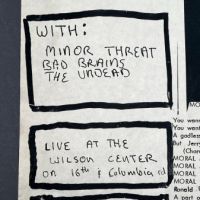 WITH:
MINOR THREAT
BAD BRAINS
THE UNDEAD
LIVE AT THE
WILSON CENTER
on 16th & Columbia rd
MO
You wann
You want
A godless
But Jerry
(Chor
MORAL
MORAL
MORAL
MORAL
Ronald
A part o